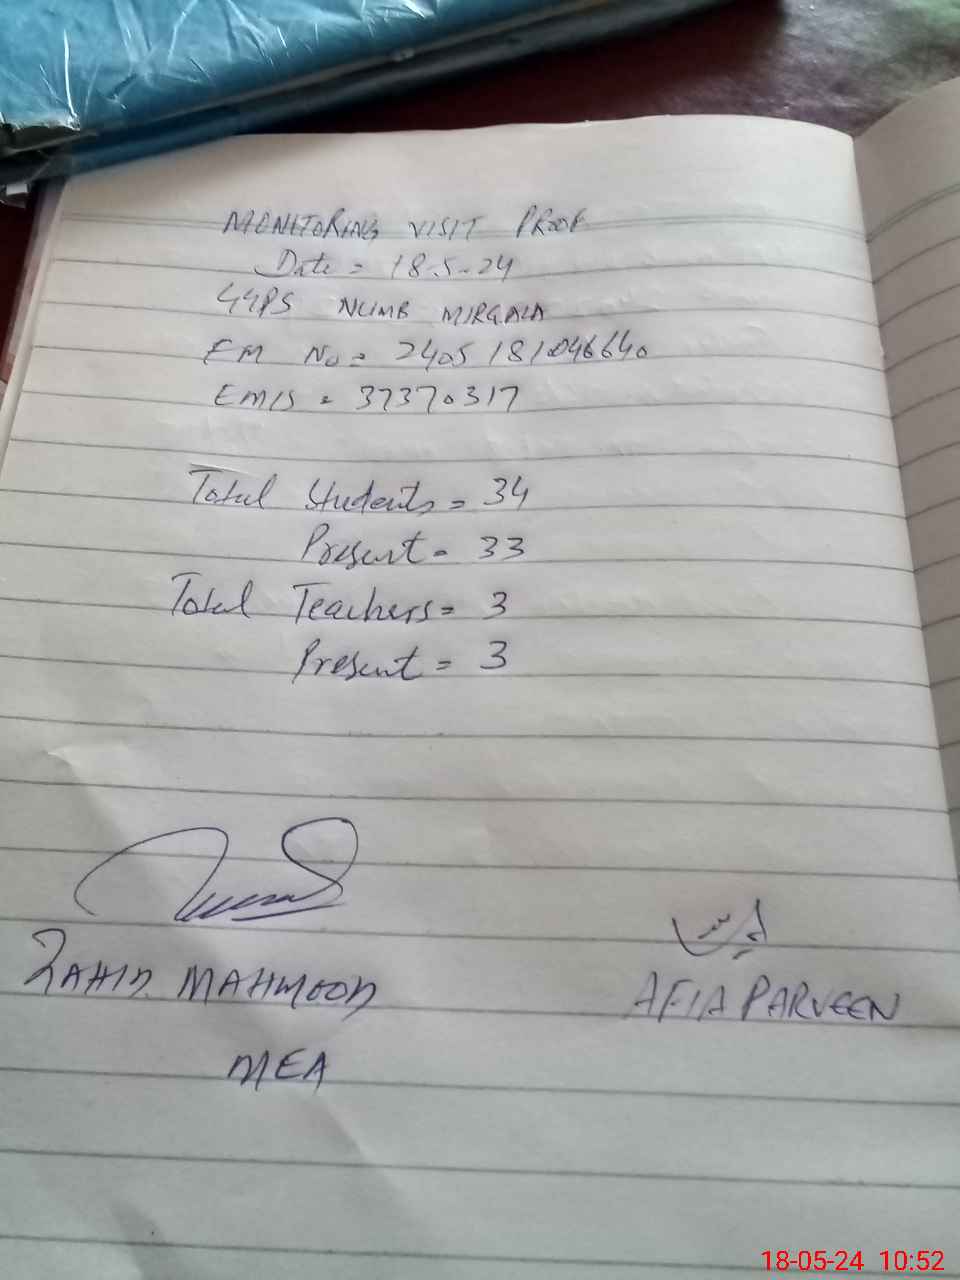 MONITORING VISIT PROOF
Date = 18.5-24
GGPS NUMB MIRGALA
EM No = 2405181046640
EMIS = 37370317
Total Students = 34
Present = 33
Total Teachers = 3
Present = 3
ZAHID MAHMOOD
AFIA PARVEEN
MEA
18-05-24 10:52